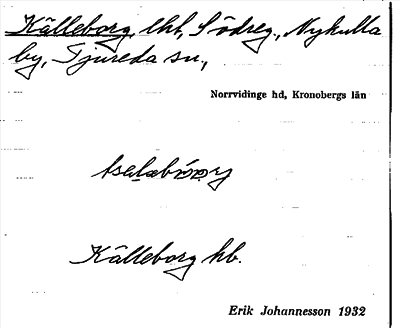 Källeborg, lht, Södreg., Nykulla
by, Tjureda sn,
Norrvidinge hd, Kronobergs län
Källeborg hb.
Erik Johannesson 1932